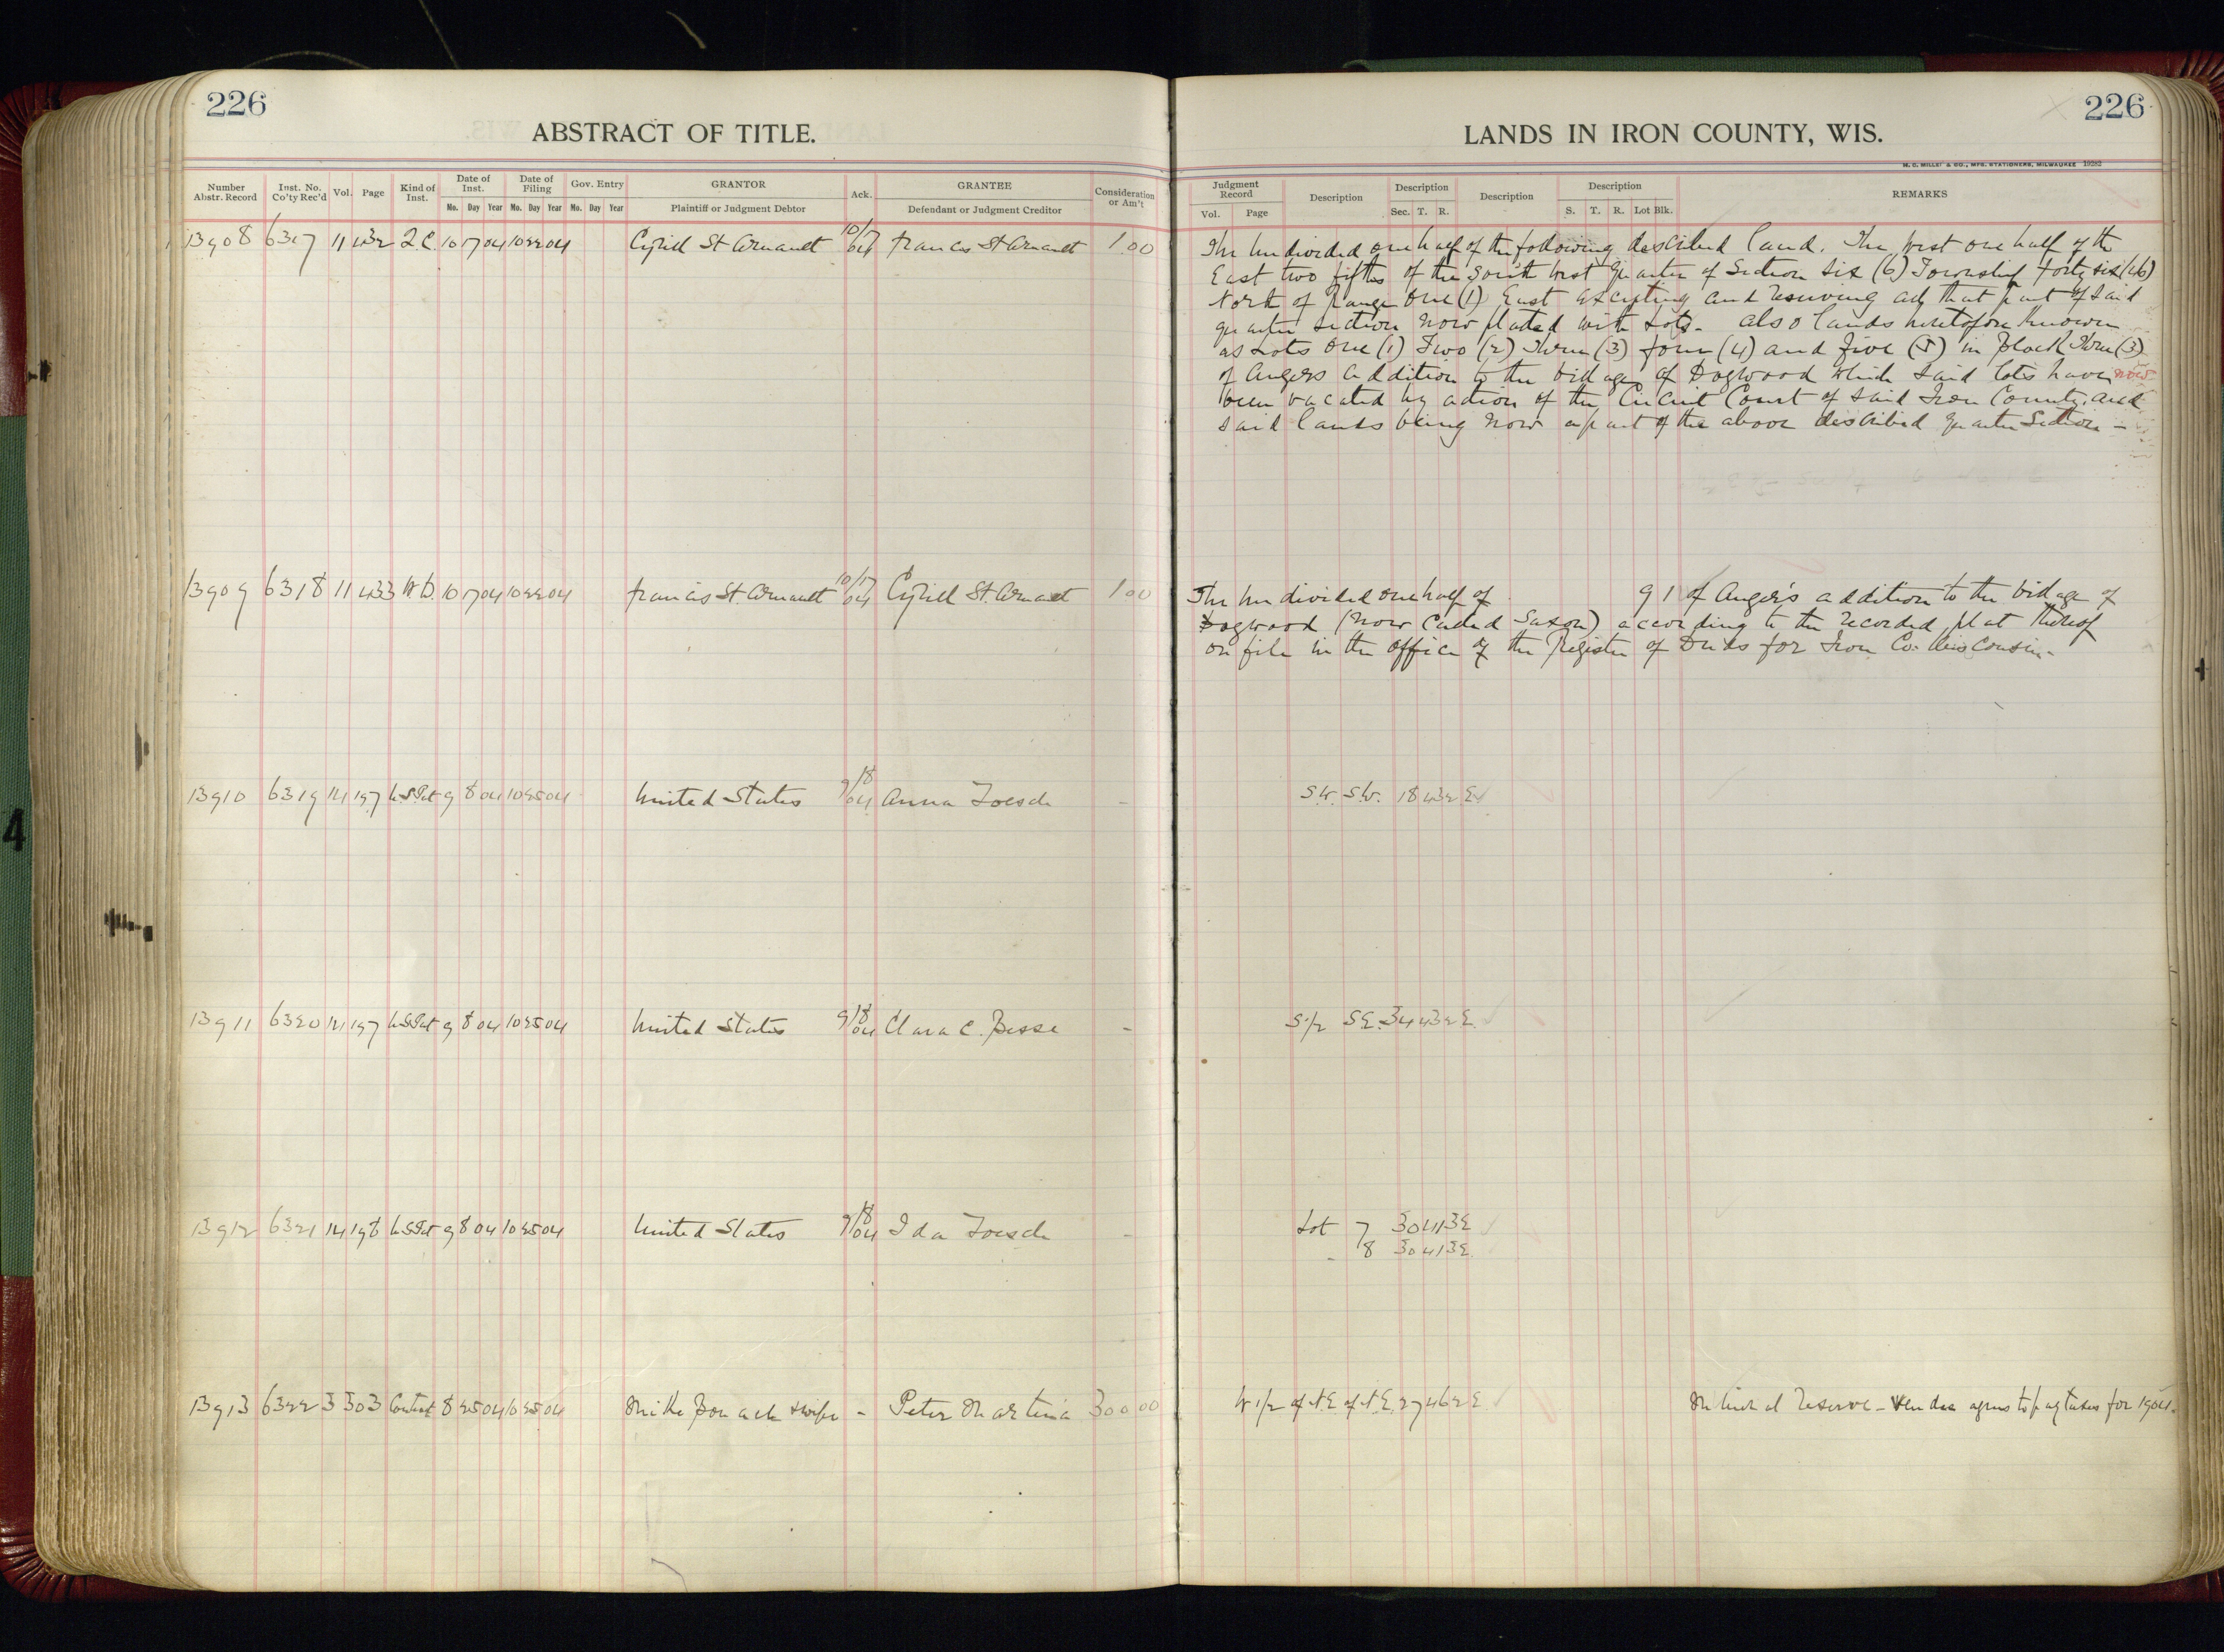 226
226
ABSTRACT OF TITLE.
LANDS IN IRON COUNTY, WIS.
M. C. MILLS & CO., MFG. STATIONERS, MILWAUKEE 19282
Number Abstr. Record
Inst. No. Co'ty Rec'd
Vol.
Page
Kind of Inst.
Date of Inst.
Mo. Day Year
Date of Filing
Mo. Day Year
Gov. Entry
Mo. Day Year
GRANTOR
Plaintiff or Judgment Debtor
Ack.
GRANTEE
Defendant or Judgment Creditor
Consideration or Am't
Judgment Record
Vol. Page
Description
Description
Sec. T. R.
Description
Description
S. T. R. Lot Blk.
REMARKS
13908 6317 11 432 Q.C. 10 17 04 10 22 04 Cyrill St Arnault 10/17/04 Francis St Arnault 1.00
The undivided one half of the following described land. The West one half of the
East two fifths of the South West Quarter of Section Six (6) Township forty six (46)
North of Range One (1) East excepting and reserving all that part of said
quarter section now platted with Lots. also lands heretofore known
as Lots One (1) Two (2) Three (3) four (4) and five (5) in Block Three (3)
of Angers addition to the village of Dogwood which said lots have now
been vacated by action of the Circuit Court of said Iron County, and
said lands being now a part of the above described quarter Section -
13909 6318 11 433 W.D. 10 17 04 10 22 04 Francis St. Arnault 10/17/04 Cyrill St. Arnault 1.00
The undivided one half of 9 1 of Anger's addition to the village of
Dogwood (now called Saxon) according to the recorded plat thereof
on file in the office of the Register of Deeds for Iron Co. Wisconsin.
13910 6319 14 197 U.S.Pat 9 8 04 10 25 04 United States 9/8/04 Anna Toesch -
S.W. S.W. 18 43 2 E
13911 6320 14 197 U.S.Pat 9 8 04 10 25 04 United States 9/8/04 Clara C. Besse -
S 1/2 S.E. 34 43 2 E.
13912 6321 14 198 U.S.Pat 9 8 04 10 25 04 United States 9/8/04 Ida Toesch -
Lot 7 30 41 3 E
- 8 30 41 3 E.
13913 6322 3 303 Contract 8 25 04 10 25 04 Mike Bonack & wife - Peter Martina 300 00
W 1/2 of N.E. of N.E. 27 46 2 E
Mineral Reserve - Vendee agrees to pay taxes for 1904.
4